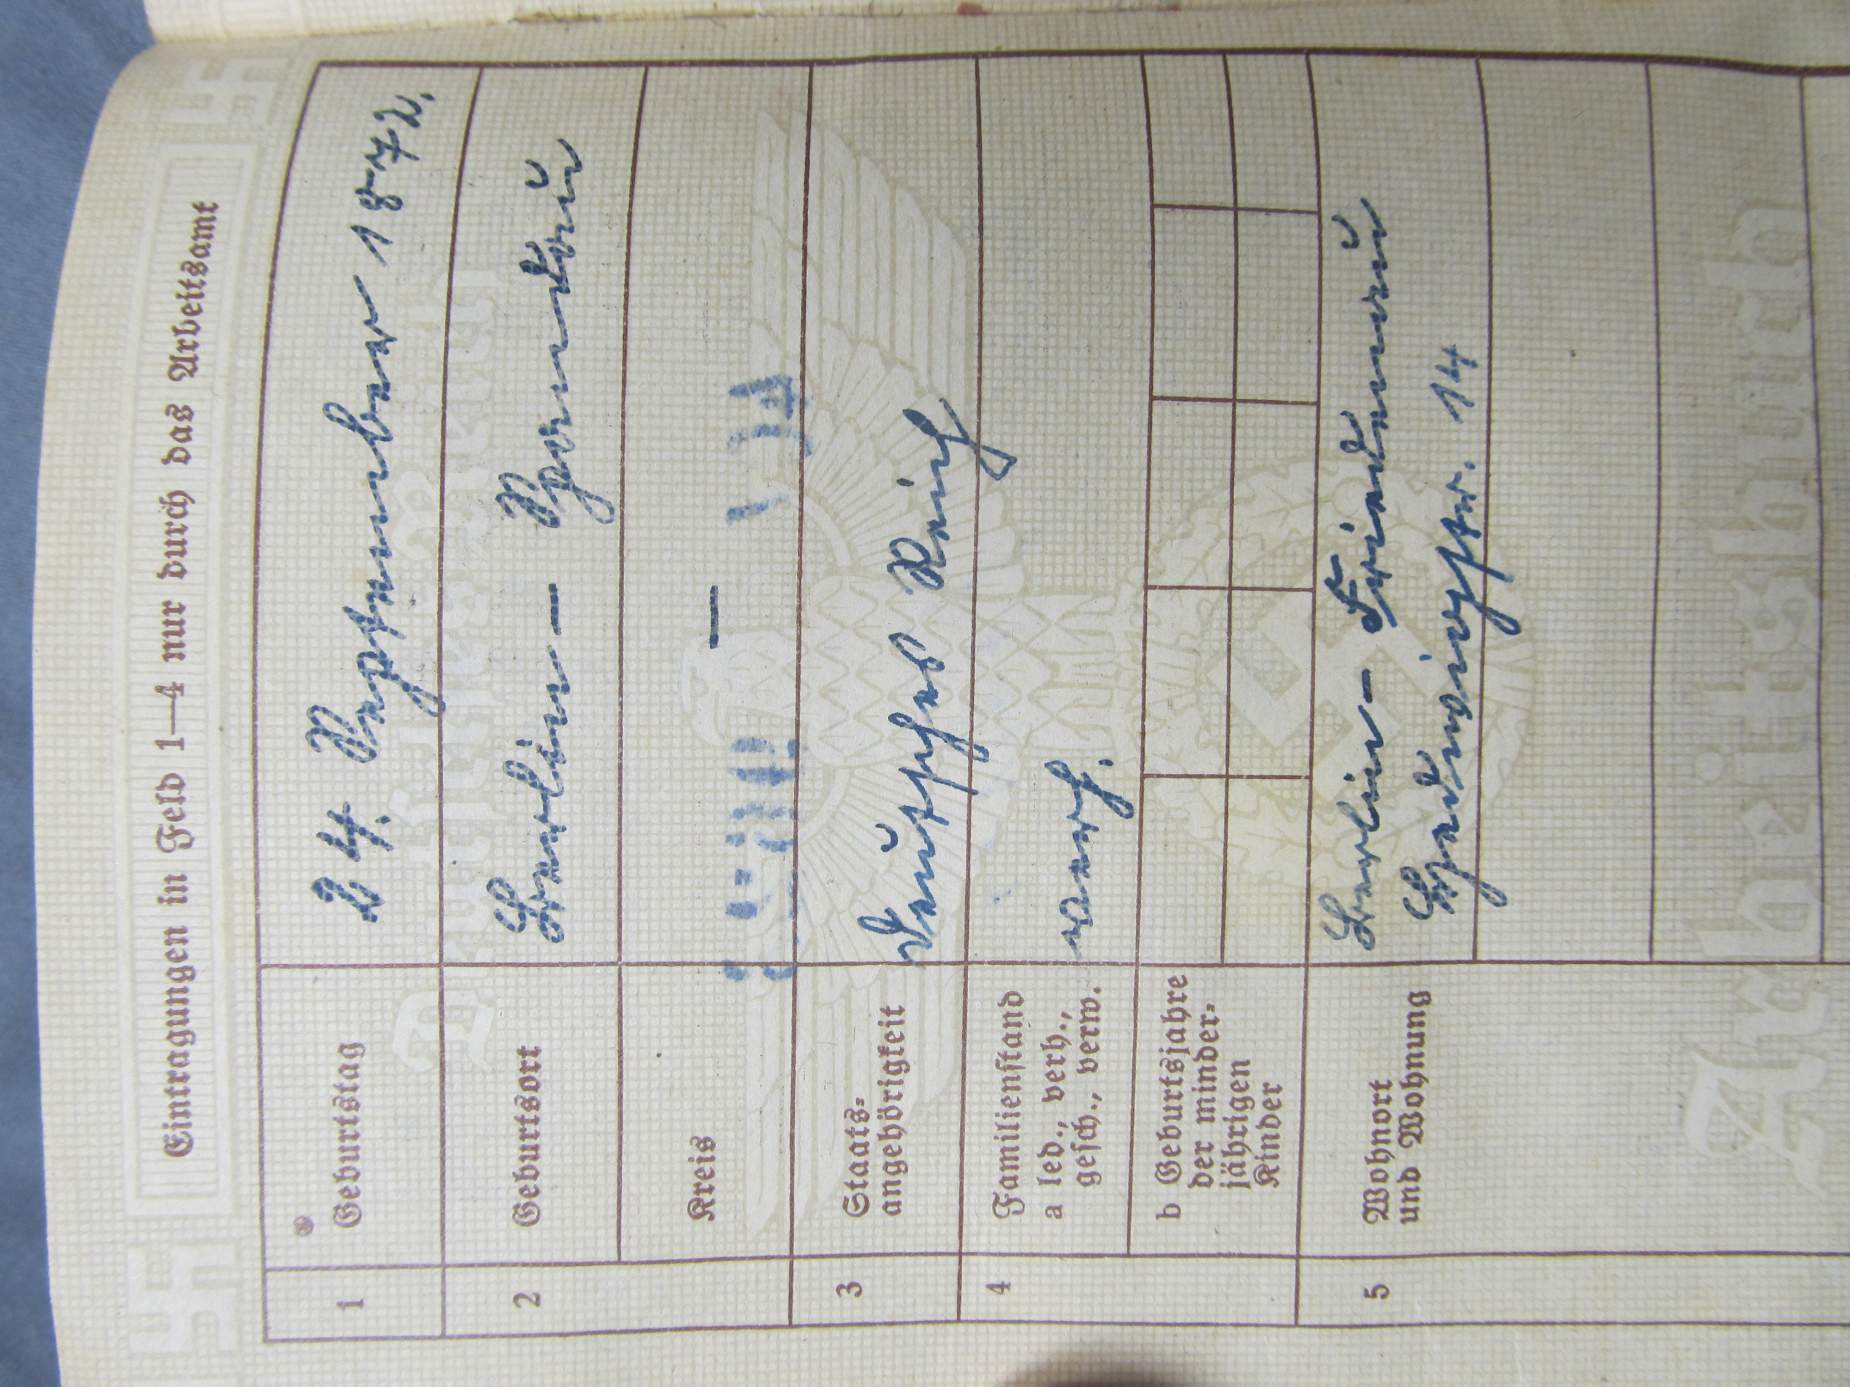 Eintragungen in Feld 1—4 nur durch das Arbeitsamt
1 Geburtstag 24. September 1872.
2 Geburtsort Berlin — Spandau
Kreis —
3 Staats-
angehörigkeit Deutsches Reich
4 Familienstand
a led., verh.,
gesch., verw. verh.
b Geburtsjahre
der minder-
jährigen
Kinder
5 Wohnort
und Wohnung
Berlin — Friedenau
Hedwigstr. 14
Deutsches Reich
Arbeitsbuch